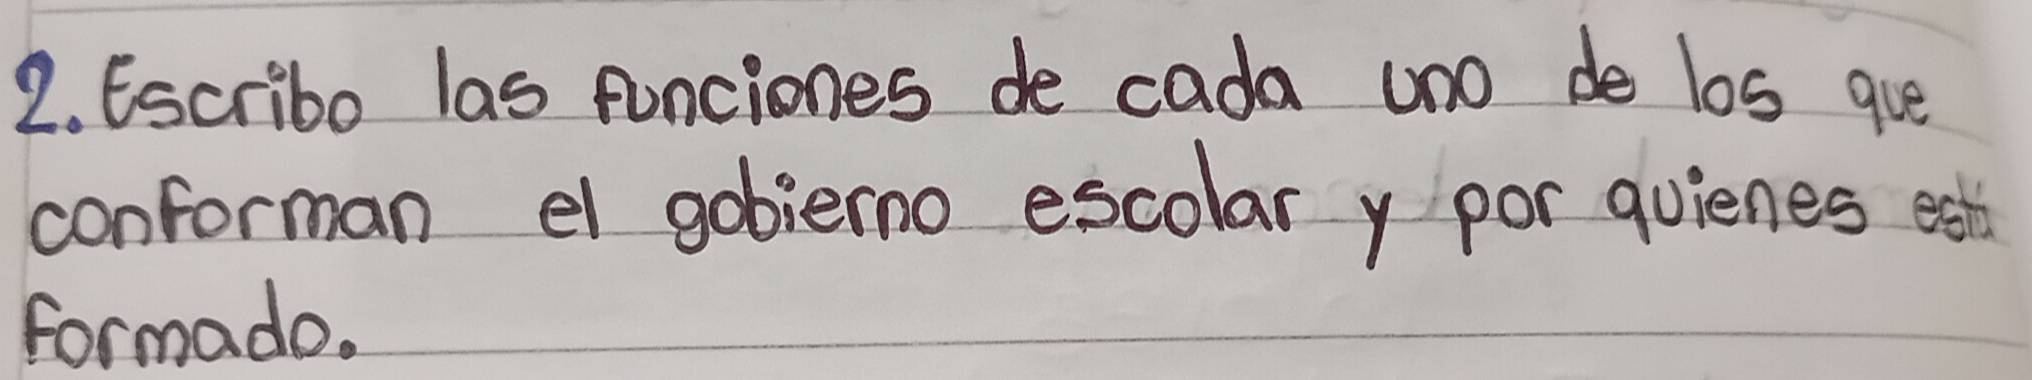 2. Escribo las funciones de cada uno de los que
conforman el gobierno escolar y por quienes está
formado.